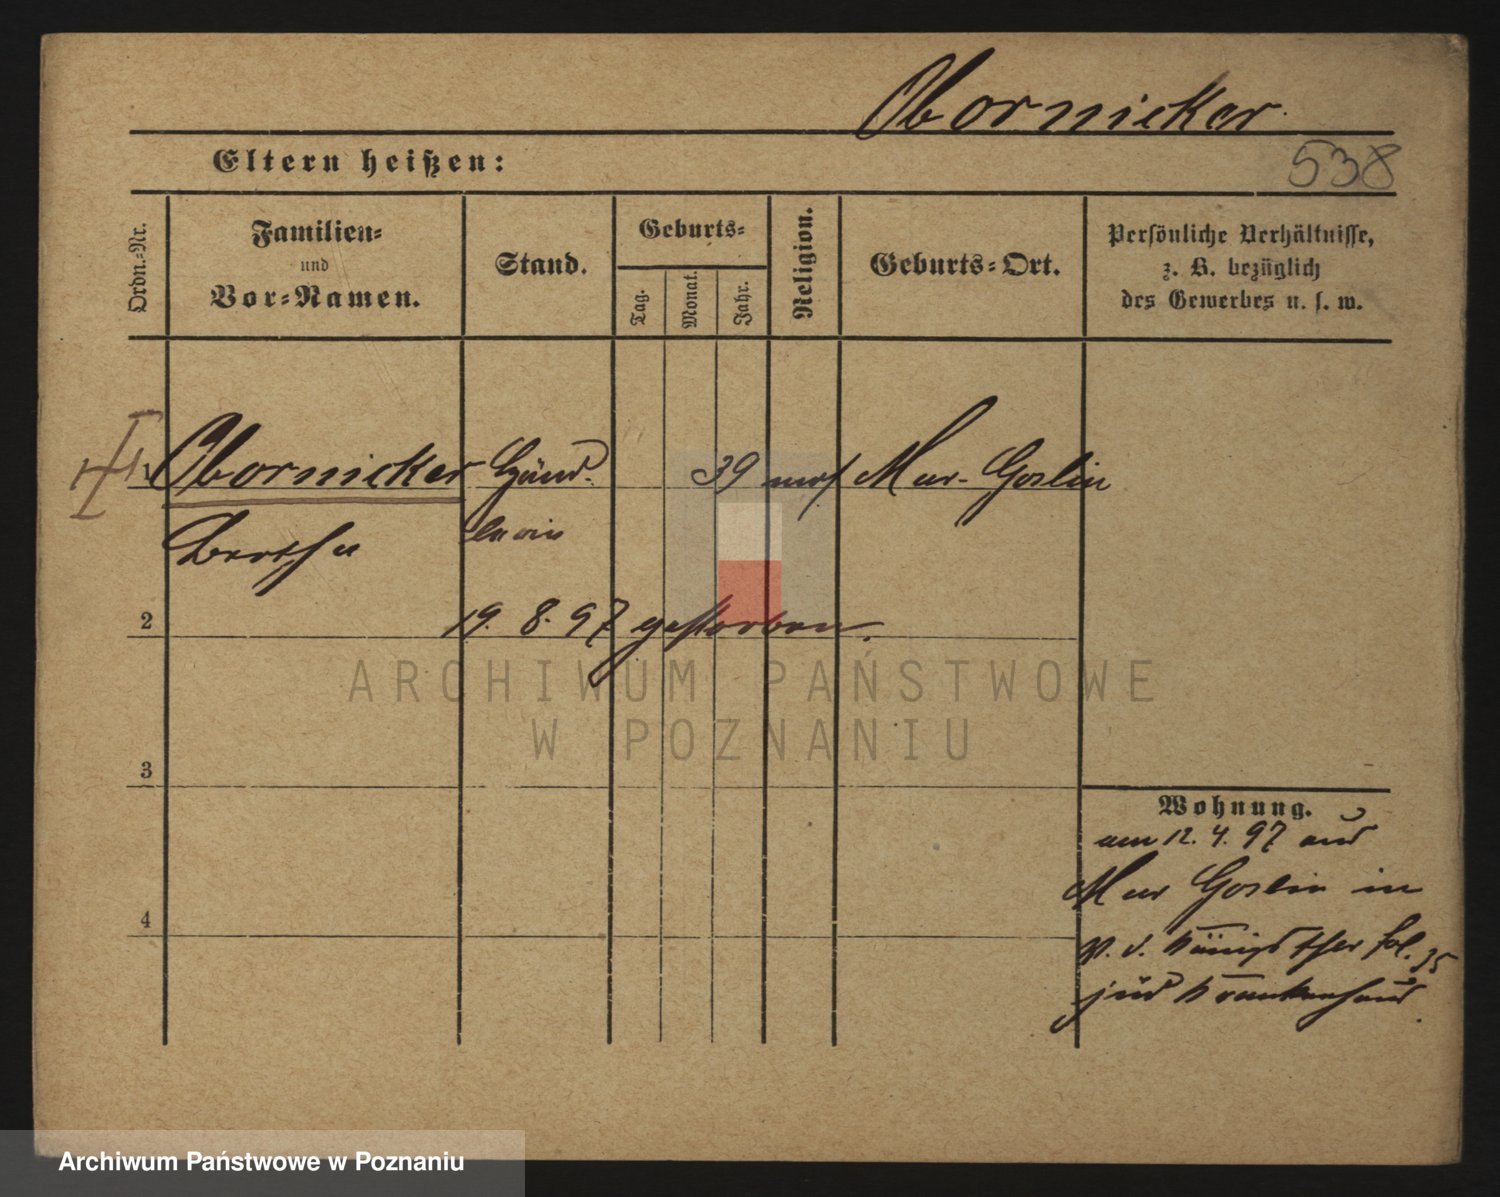 Obornicker
Eltern heißen:
538
Ordn.-Nr.
Familien-
und
Vor-Namen.
Stand.
Geburts-
Tag.
Monat.
Jahr.
Religion.
Geburts-Ort.
Persönliche Verhältnisse,
z. B. bezüglich
des Gewerbes u. s. w.
1 Obornicker Händ- 39 mos Mur. Goslin
Bertha lerin
2 19. 8. 97 gestorben.
3
4
Wohnung.
am 12. 4. 97 aus
Mur Goslin in
Königsthor
jüd Krankenhaus
ARCHIWUM PAŃSTWOWE
W POZNANIU
Archiwum Państwowe w Poznaniu